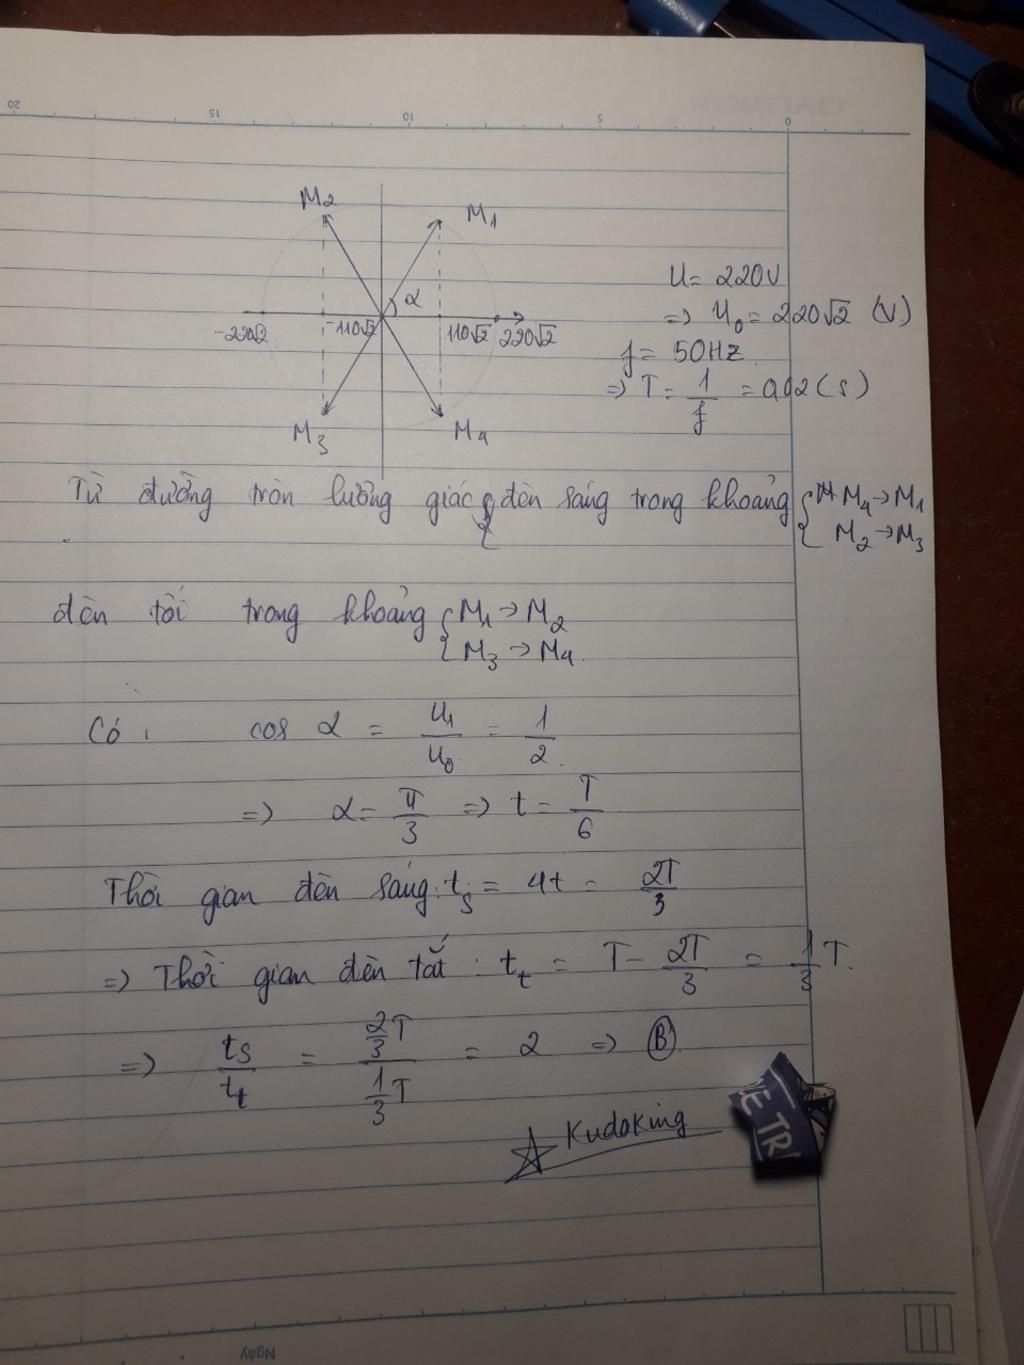 20 15 10 5 0
M2 M1
α
-220√2 -110√2 110√2 220√2
M3 M4
U = 220V
=> U₀ = 220√2 (V)
f = 50HZ
=> T = 1/f = 0,02 (s)
Từ đường tròn lượng giác { đèn sáng trong khoảng { M4 → M1
M2 → M3
đèn tối trong khoảng { M1 → M2
M3 → M4.
Có: cos α = u₁/u₀ = 1/2.
=> α = π/3 => t = T/6
Thời gian đèn sáng: ts = 4t = 2T/3
=> Thời gian đèn tắt: tt = T - 2T/3 = 1/3 T.
=> ts/tt = (2/3 T)/(1/3 T) = 2 => B
KudoKing
E TR
Ngày